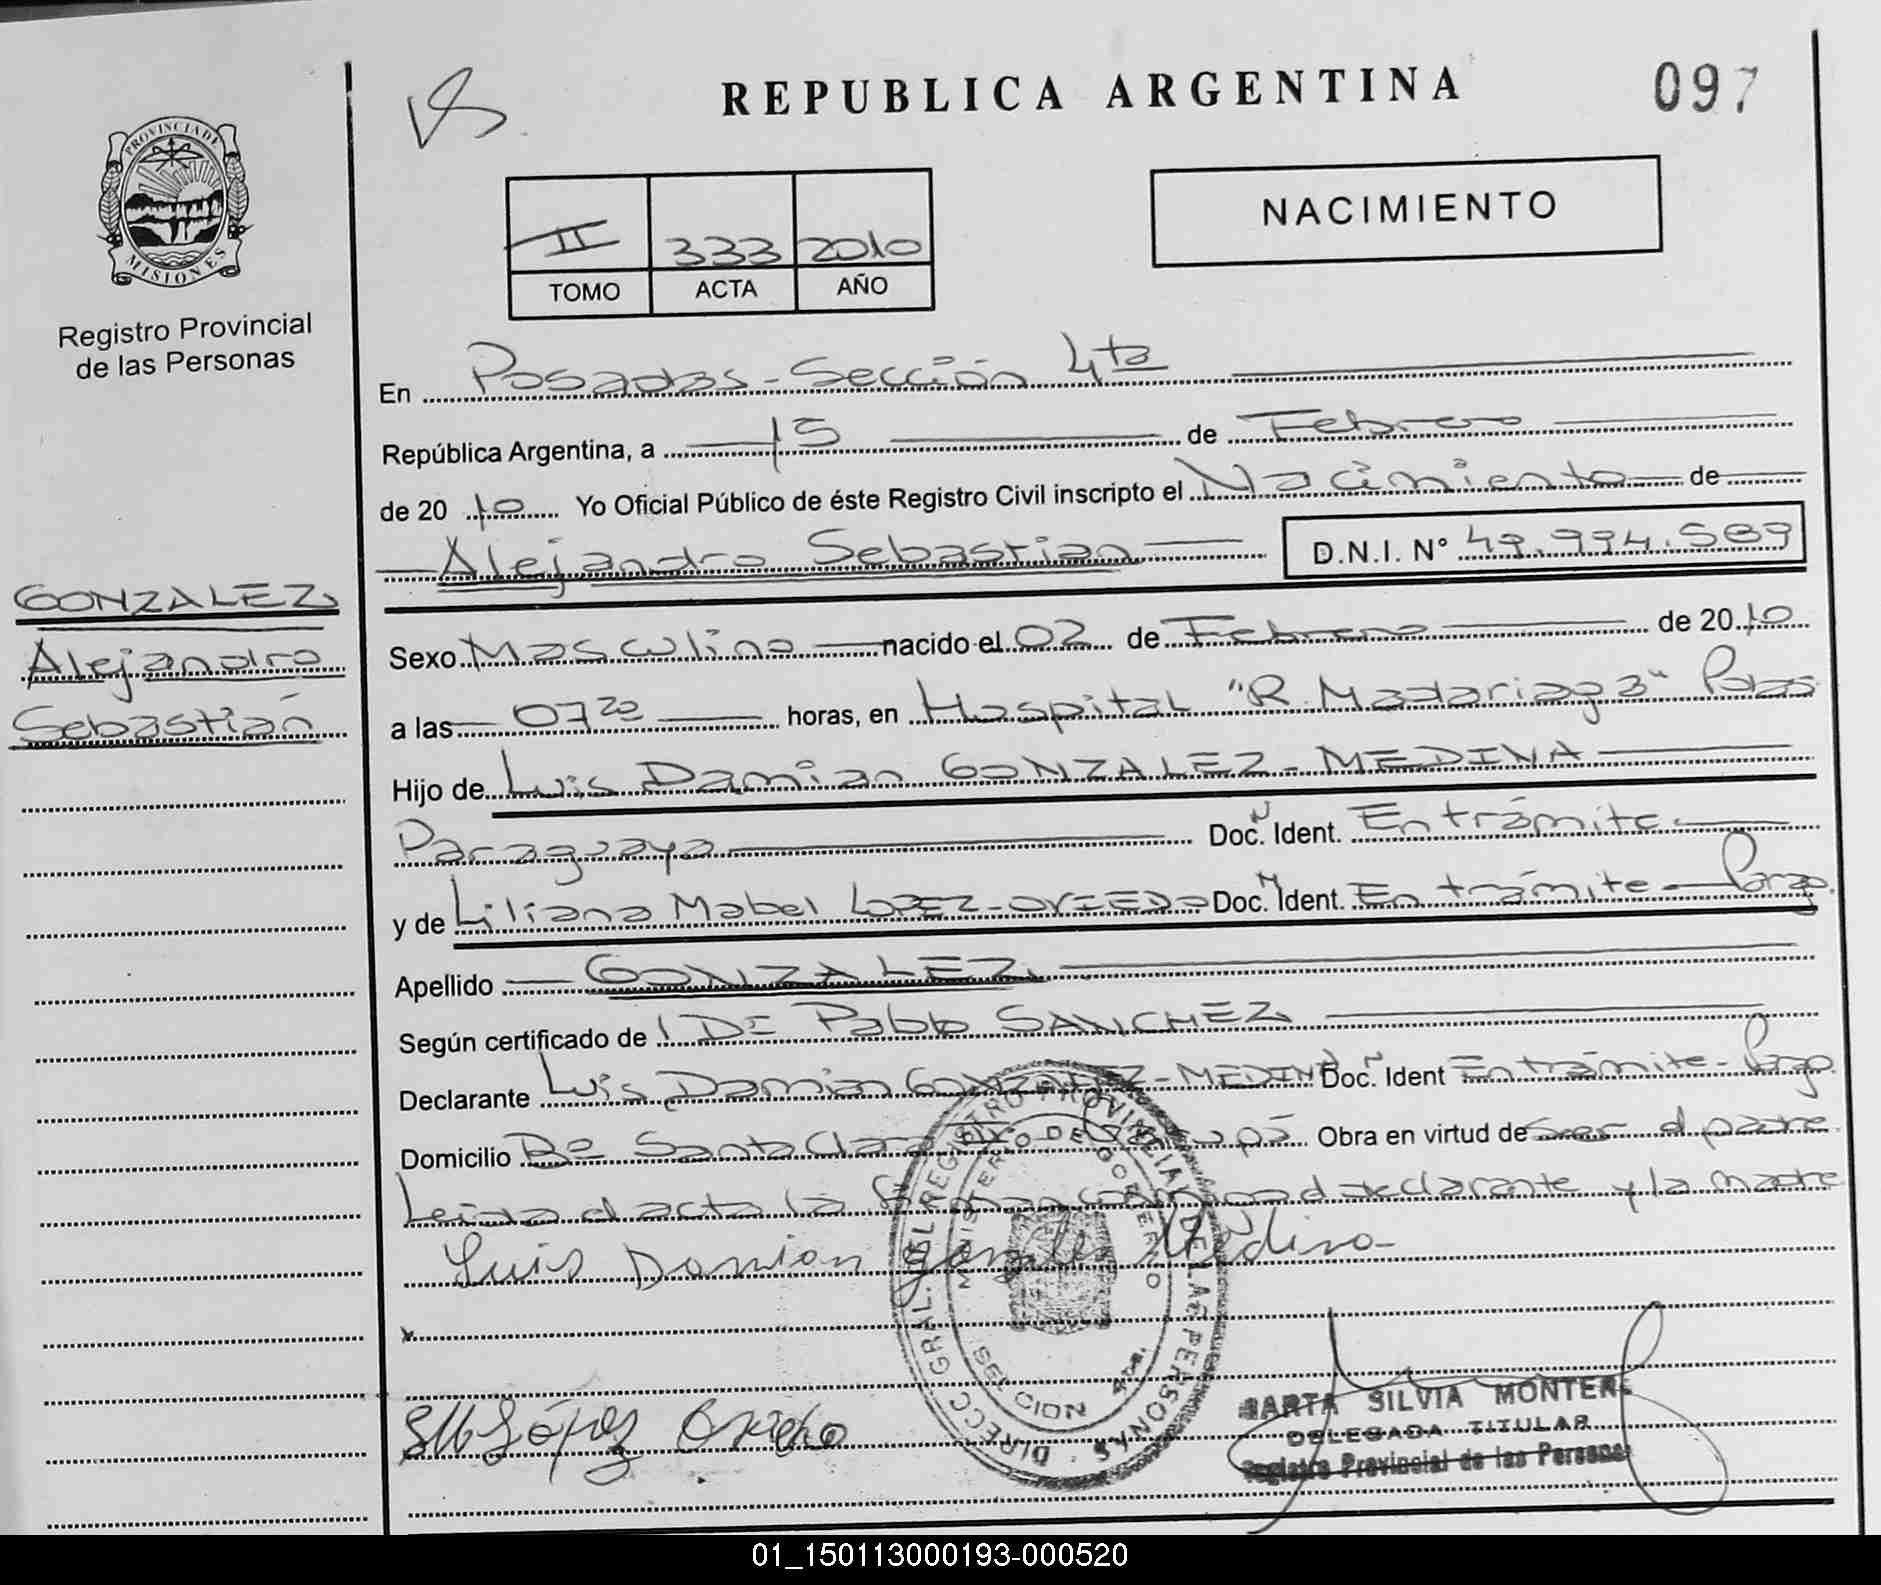 REPUBLICA ARGENTINA
097
PROVINCIA DE
MISIONES
Registro Provincial
de las Personas
II 333 2010
TOMO ACTA AÑO
NACIMIENTO
En Posadas - Sección 4ta
República Argentina, a 15 de Febrero
de 2010 Yo Oficial Público de éste Registro Civil inscripto el Nacimiento de
Alejandro Sebastian D.N.I. N° 49.994.589
GONZALEZ
Alejandro
Sebastián
Sexo Masculino nacido el 02 de Febrero de 2010
a las 07 20 horas, en Hospital "R. Madariaga" Pdas
Hijo de Luis Damian GONZALEZ - MEDINA
Paraguaya Doc. N Ident. En trámite
y de Liliana Mabel LOPEZ - OVIEDO Doc. N Ident. En trámite - Parag.
Apellido GONZALEZ
Según certificado de Pablo SANCHEZ
Declarante Luis Damian GONZALEZ - MEDINA Doc. N Ident En trámite -
Domicilio Bo Santa Clara Obra en virtud de ser el padre
Leida el acta la firman conmigo el declarante y la madre
Luis Damian Gonzalez Medina
López Oviedo
DIRECC. GRAL. DEL REGISTRO PROVINCIAL DE LAS PERSONAS
MINISTERIO DE GOBIERNO
MARTA SILVIA MONTER
DELEGADA TITULAR
Registro Provincial de las Personas
01_150113000193-000520